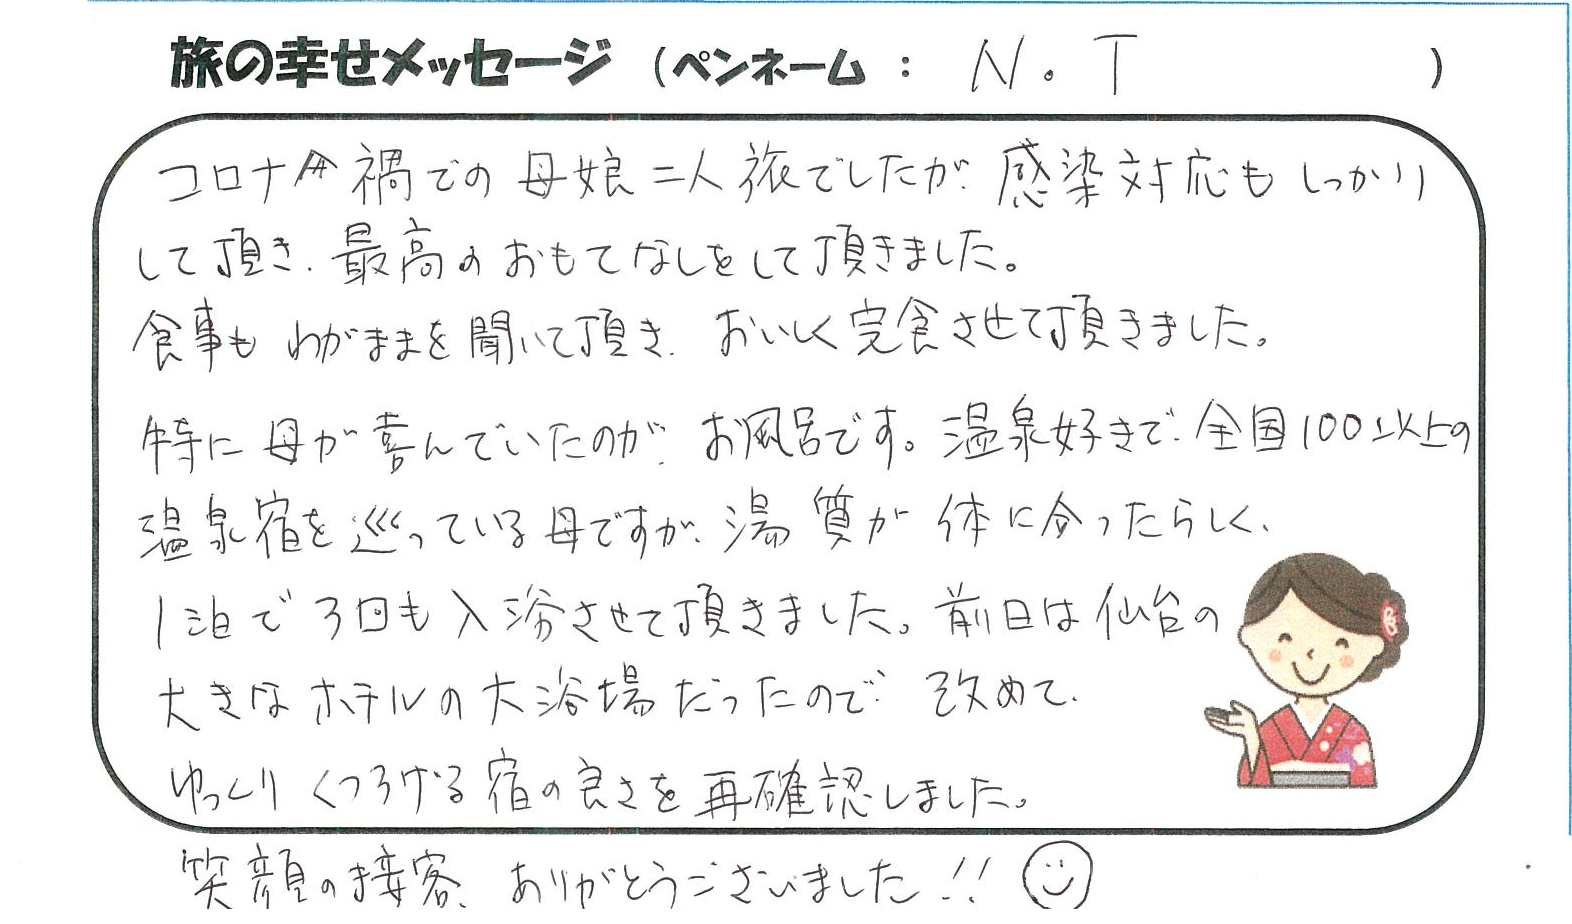 旅の幸せメッセージ（ペンネーム： N.T ）
コロナ禍での母娘二人旅でしたが、感染対応もしっかり
して頂き、最高のおもてなしをして頂きました。
食事もわがままを聞いて頂き、おいしく完食させて頂きました。
特に母が喜んでいたのが、お風呂です。温泉好きで、全国100以上の
温泉宿を巡っている母ですが、湯質が体に合ったらしく、
1泊で3回も入浴させて頂きました。前日は仙台の
大きなホテルの大浴場だったので、改めて、
ゆっくりくつろげる宿の良さを再確認しました。
笑顔の接客、ありがとうございました!!